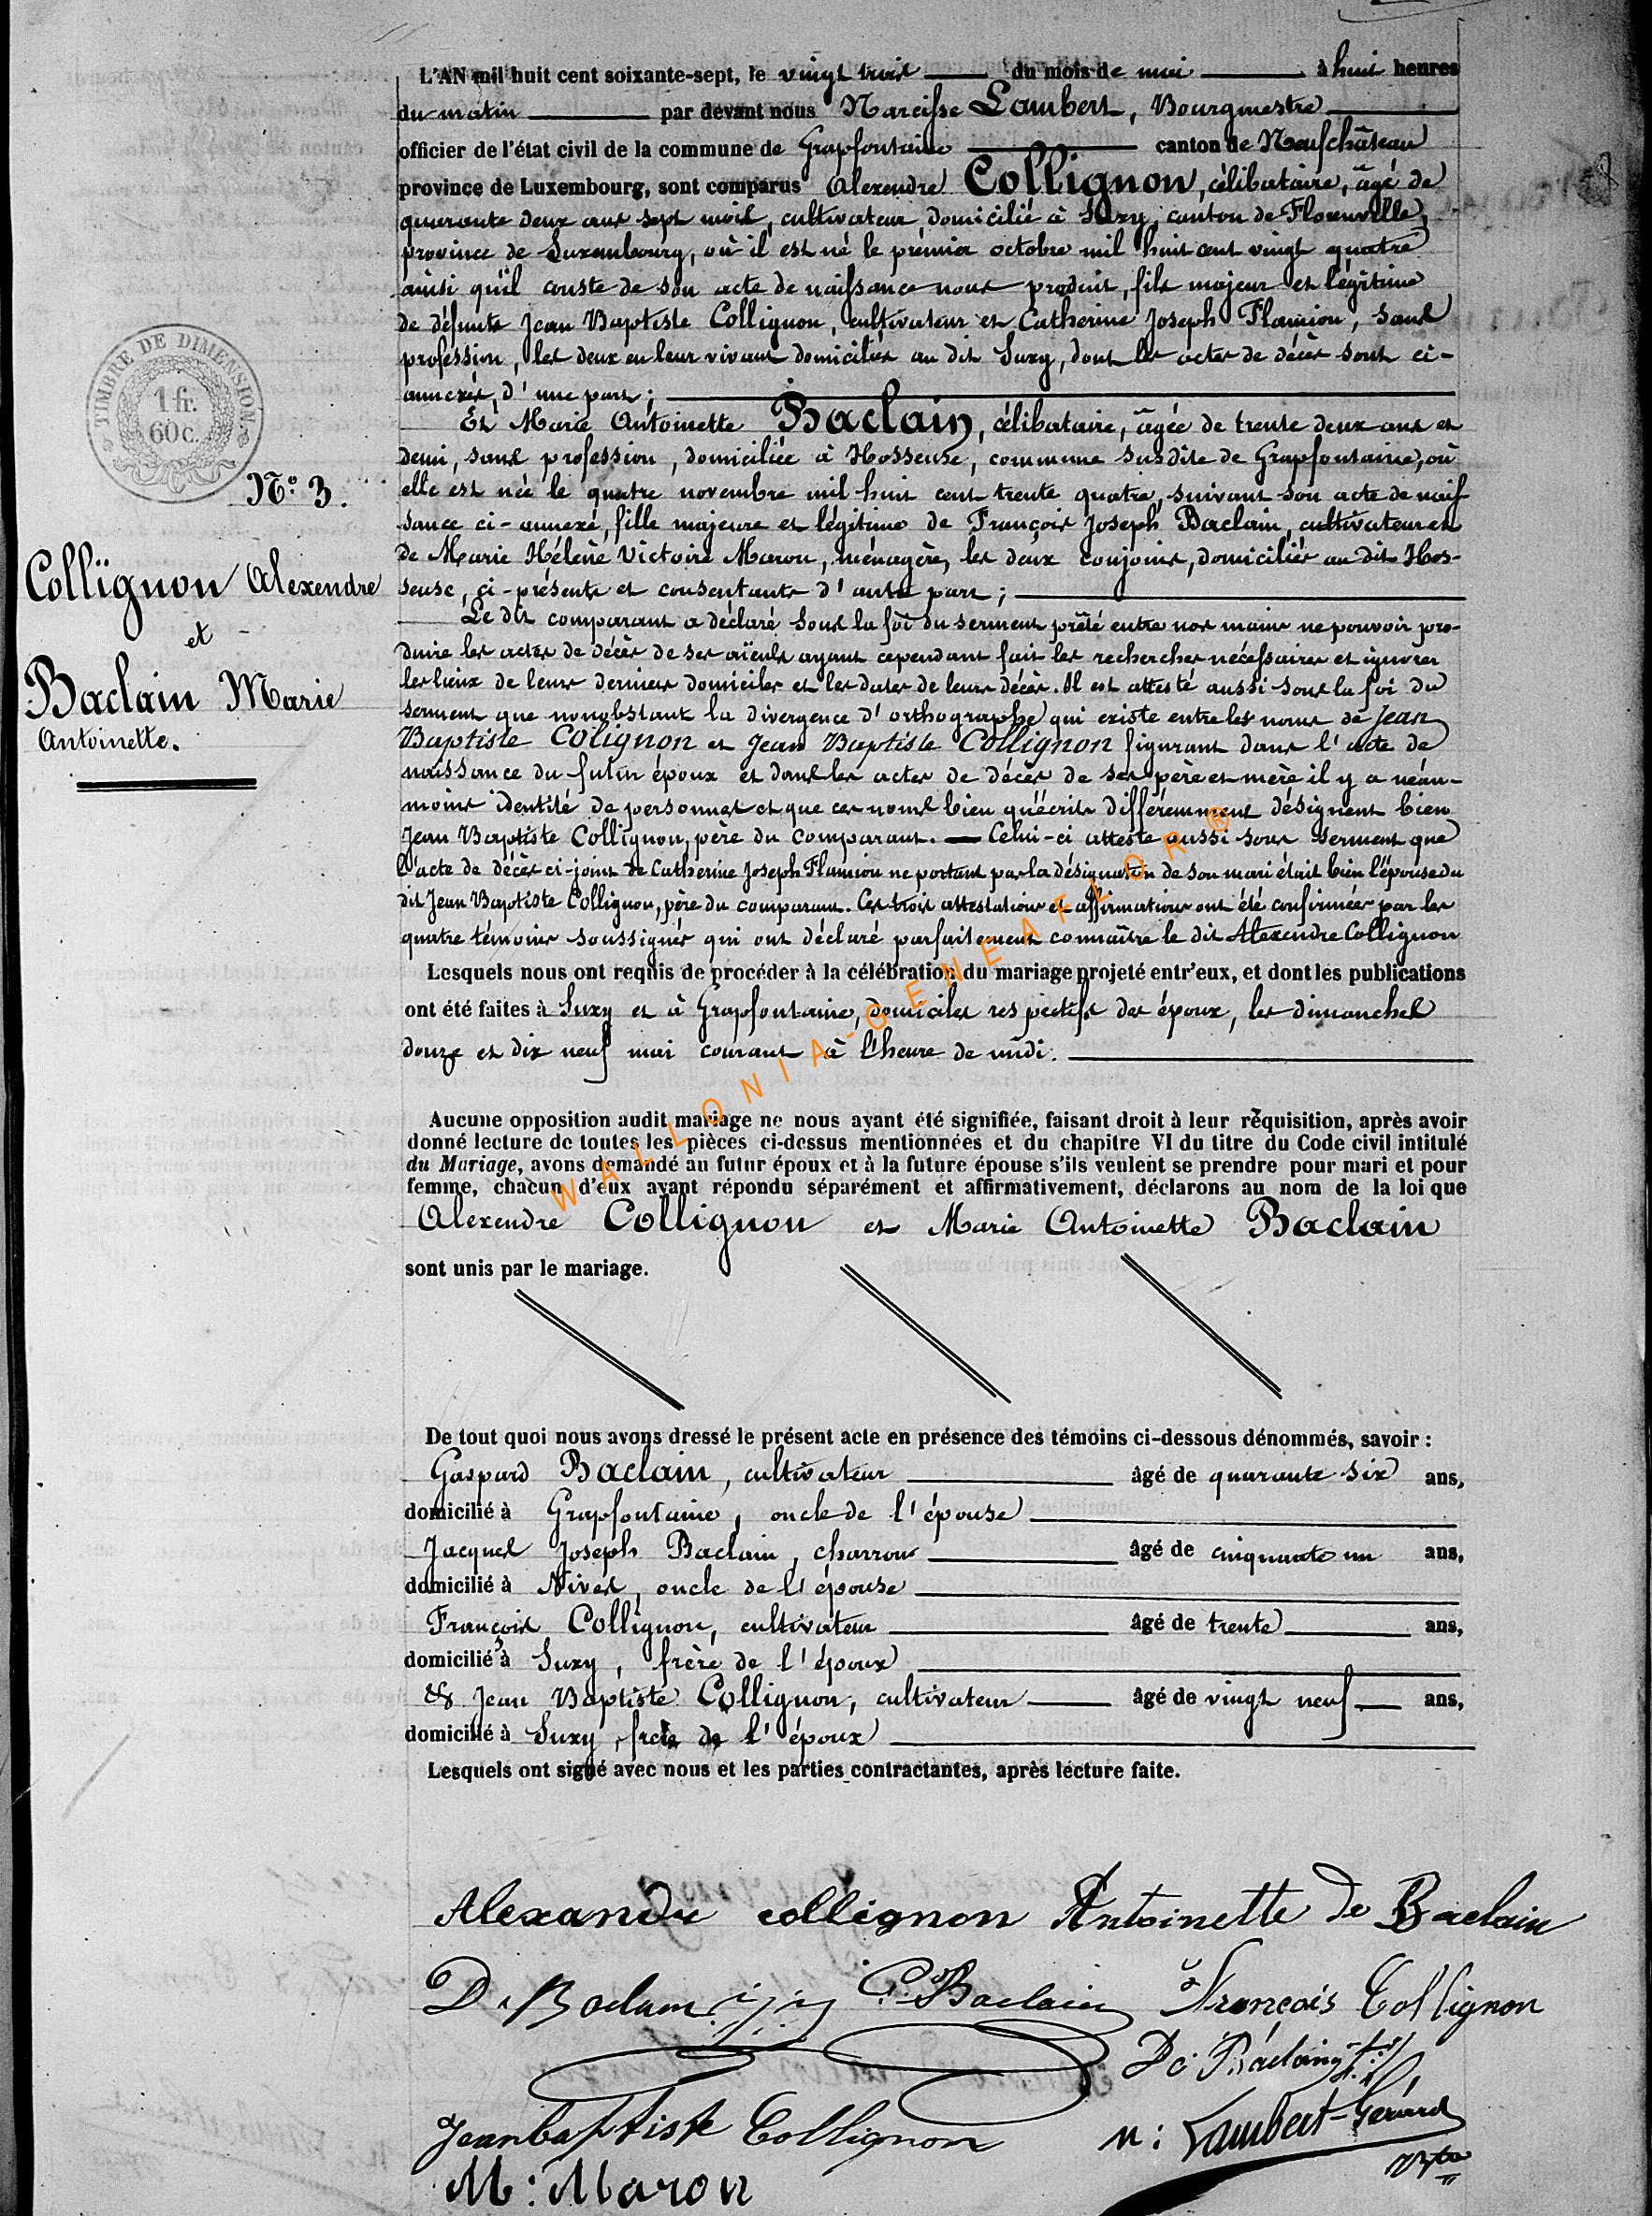 L'AN mil huit cent soixante-sept, le vingt trois du mois de mai à huit heures
du matin par devant nous Narcisse Lambert, Bourgmestre
officier de l'état civil de la commune de Grapfontaine canton de Neufchâteau
province de Luxembourg, sont comparus Alexendre Collignon, célibataire, âgé de
quarante deux ans sept mois, cultivateur, domicilié à Suxy, canton de Florenville,
province de Luxembourg, où il est né le prémier octobre mil huit cent vingt quatre
ainsi qu'il conste de son acte de naissance nous produit, fils majeur et légitime
de défunts Jean Baptiste Collignon, cultivateur et Catherine Joseph Flamion, sans
profession, les deux en leur vivant domiciliés au dit Suxy, dont les actes de décès sont ci-
annexés, d'une part;
Et Marie Antoinette Baclain, célibataire, âgée de trente deux ans et
demi, sans profession, domiciliée à Hosseuse, commune susdite de Grapfontaine, où
elle est née le quatre novembre mil huit cent trente quatre, suivant son acte de nais
sance ci-annexé, fille majeure et légitime de François Joseph Baclain, cultivateur et
de Marie Hélène Victoire Maron, ménagère, les deux conjoints, domiciliés au dit Hos-
seuse, ci-présents et consentants d'autre part;
Le dit comparant a déclaré sous la foi du serment prêté entre nos mains ne pouvoir pro-
duire les actes de décès de ses aïeuls ayant cependant fait les recherches nécessaires et ignorer
les lieux de leurs derniers domiciles et les dates de leurs décès. Il est attesté aussi sous la foi du
serment que nonobstant la divergence d'orthographe qui existe entre les noms de Jean
Baptiste Colignon et Jean Baptiste Collignon figurant dans l'acte de
naissance du futur époux et dans les actes de décès de ses père et mère il y a néan-
moins identité de personnes et que ces noms bien qu'écrits différemment désignent bien
Jean Baptiste Collignon, père du comparant. — Celui-ci atteste aussi sous serment que
l'acte de décès ci-joint de Catherine Joseph Flamion ne portant pas la désignation de son mari était bien l'épouse du
dit Jean Baptiste Collignon, père du comparant. Ces trois attestations et affirmations ont été confirmées par les
quatre témoins soussignés qui ont déclaré parfaitement connaître le dit Alexendre Collignon
Lesquels nous ont requis de procéder à la célébration du mariage projeté entr'eux, et dont les publications
ont été faites à Suxy et à Grapfontaine, domiciles respectifs des époux, les dimanches
douze et dix neuf mai courant à l'heure de midi.
Aucune opposition audit mariage ne nous ayant été signifiée, faisant droit à leur réquisition, après avoir
donné lecture de toutes les pièces ci-dessus mentionnées et du chapitre VI du titre du Code civil intitulé
du Mariage, avons demandé au futur époux et à la future épouse s'ils veulent se prendre pour mari et pour
femme, chacun d'eux ayant répondu séparément et affirmativement, déclarons au nom de la loi que
Alexendre Collignon et Marie Antoinette Baclain
sont unis par le mariage.
De tout quoi nous avons dressé le présent acte en présence des témoins ci-dessous dénommés, savoir :
Gaspard Baclain, cultivateur âgé de quarante six ans,
domicilié à Grapfontaine, oncle de l'épouse
Jacques Joseph Baclain, charron âgé de cinquante un ans,
domicilié à Nives, oncle de l'épouse
François Collignon, cultivateur âgé de trente ans,
domicilié à Suxy, frère de l'époux
& Jean Baptiste Collignon, cultivateur âgé de vingt neuf ans,
domicilié à Suxy, frère de l'époux
Lesquels ont signé avec nous et les parties contractantes, après lecture faite.
Alexandre collignon Antoinette De Baclain
D. Baclain j.j. G. Baclain François Collignon
De Baclain
Jean baptiste Collignon n: Lambert-Gérard
M: Maron Bgtre
TIMBRE DE DIMENSION
1 fr.
60 c.
N° 3.
Collignon Alexendre
et
Baclain Marie
Antoinette.
WALLONIA-GENEAFLOR®